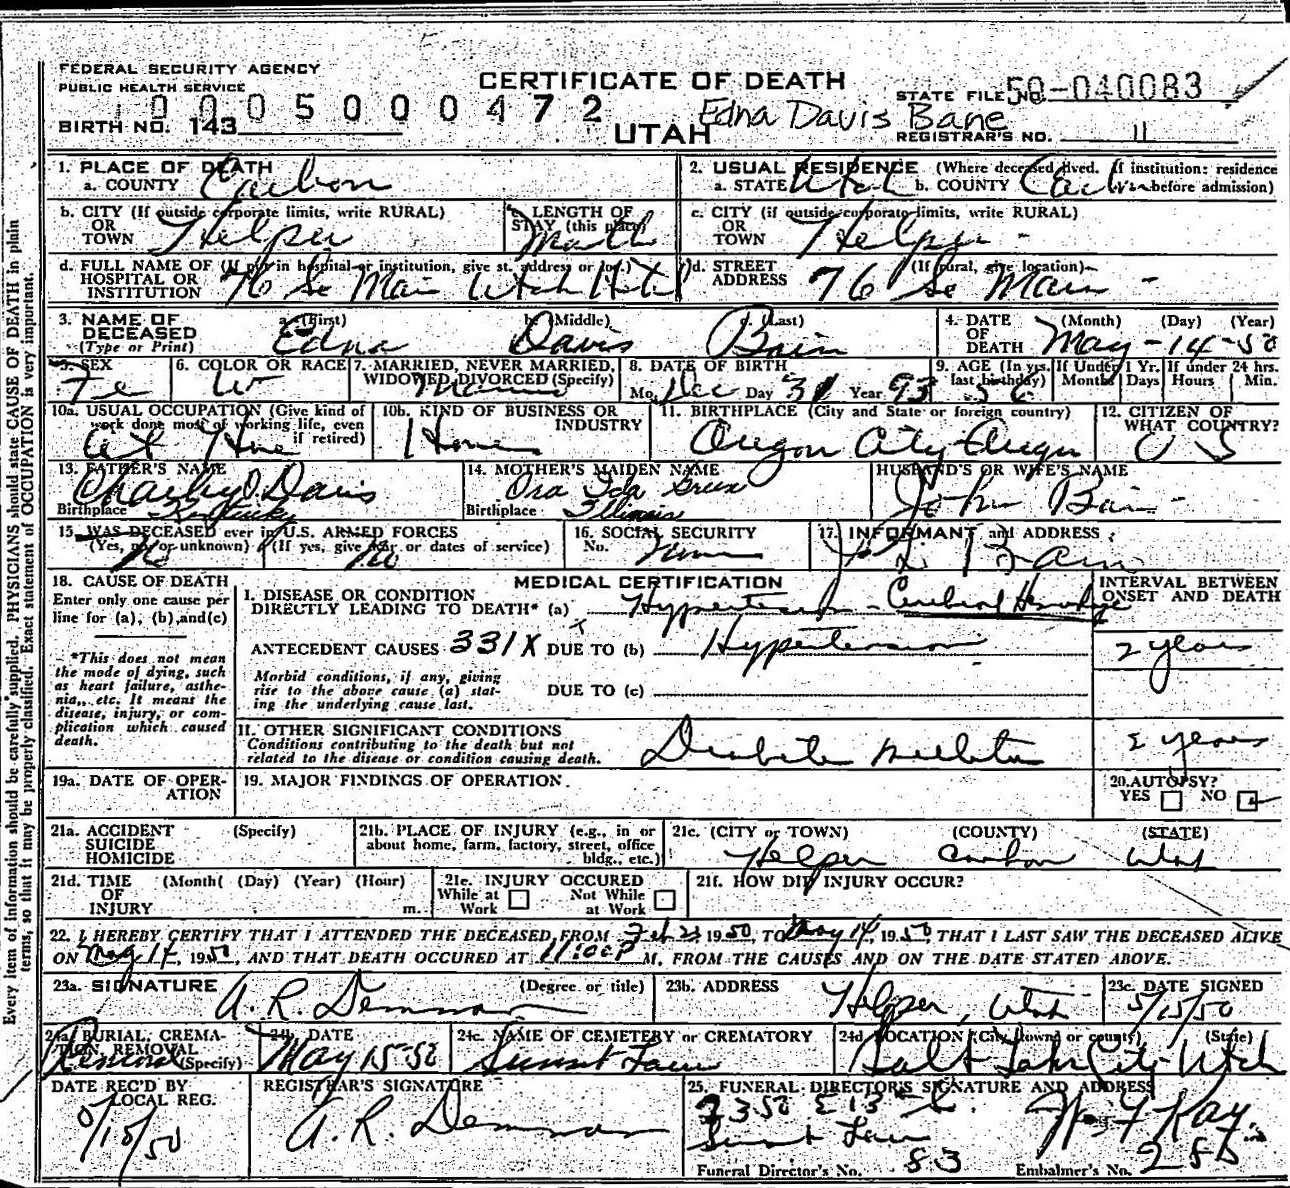 FEDERAL SECURITY AGENCY
PUBLIC HEALTH SERVICE
CERTIFICATE OF DEATH
STATE FILE NO. 50-040083
0005000472
Edna Davis Bane
BIRTH NO. 143
UTAH
REGISTRAR'S NO. 11
1. PLACE OF DEATH
a. COUNTY Carbon
2. USUAL RESIDENCE (Where deceased lived. If institution: residence before admission)
a. STATE Utah b. COUNTY Carbon
b. CITY (If outside corporate limits, write RURAL) OR TOWN Helper
c. LENGTH OF STAY (this place)
c. CITY (if outside corporate limits, write RURAL) OR TOWN Helper -
d. FULL NAME OF (If not in hospital or institution, give st. address or loc.) HOSPITAL OR INSTITUTION 76 So Main Utah Hotel
d. STREET ADDRESS (If rural, give location) 76 So Main -
3. NAME OF DECEASED (Type or Print)
a. (First) Edna b. (Middle) Davis c. (Last) Bain
4. DATE OF DEATH (Month) (Day) (Year) May-14-50
5. SEX Fe
6. COLOR OR RACE W
7. MARRIED, NEVER MARRIED, WIDOWED, DIVORCED (Specify)
8. DATE OF BIRTH Mo. Dec Day 31 Year 93
9. AGE (In yrs. last birthday) 56
If Under 1 Yr. Months Days
If under 24 hrs. Hours Min.
10a. USUAL OCCUPATION (Give kind of work done most of working life, even if retired) at Home
10b. KIND OF BUSINESS OR INDUSTRY Home
11. BIRTHPLACE (City and State or foreign country) Oregon City Oregon
12. CITIZEN OF WHAT COUNTRY? U S
13. FATHER'S NAME Charley O. Davis
Birthplace Kentucky
14. MOTHER'S MAIDEN NAME Ora Ida Green
Birthplace Illinois
HUSBAND'S OR WIFE'S NAME John Bain -
15. WAS DECEASED ever in U.S. ARMED FORCES
(Yes, no or unknown) No (If yes, give war or dates of service) No
16. SOCIAL SECURITY No. None
17. INFORMANT and ADDRESS Bain
18. CAUSE OF DEATH
Enter only one cause per line for (a), (b), and (c)
*This does not mean the mode of dying, such as heart failure, asthenia, etc. It means the disease, injury, or complication which caused death.
MEDICAL CERTIFICATION
INTERVAL BETWEEN ONSET AND DEATH
I. DISEASE OR CONDITION DIRECTLY LEADING TO DEATH* (a) Hypertension - Cerebral Hemorrhage
ANTECEDENT CAUSES 331X DUE TO (b) Hypertension 2 years
Morbid conditions, if any, giving rise to the above cause (a) stating the underlying cause last.
DUE TO (c)
II. OTHER SIGNIFICANT CONDITIONS
Conditions contributing to the death but not related to the disease or condition causing death.
Diabetes mellitus years
19a. DATE OF OPERATION
19. MAJOR FINDINGS OF OPERATION
20. AUTOPSY? YES NO
21a. ACCIDENT SUICIDE HOMICIDE (Specify)
21b. PLACE OF INJURY (e.g., in or about home, farm, factory, street, office bldg., etc.)
21c. (CITY or TOWN) (COUNTY) (STATE)
Helper Carbon Utah
21d. TIME OF INJURY (Month) (Day) (Year) (Hour) m.
21e. INJURY OCCURED While at Work Not While at Work
21f. HOW DID INJURY OCCUR?
22. I HEREBY CERTIFY THAT I ATTENDED THE DECEASED FROM Feb 23, 1950, TO May 14, 1950, THAT I LAST SAW THE DECEASED ALIVE
ON May 14, 1950, AND THAT DEATH OCCURED AT 11:00 P M, FROM THE CAUSES AND ON THE DATE STATED ABOVE.
23a. SIGNATURE (Degree or title) A. R. Demman
23b. ADDRESS Helper, Utah
23c. DATE SIGNED 5/15/50
24a. BURIAL, CREMATION, REMOVAL (Specify) Removal
24b. DATE May 15-50
24c. NAME OF CEMETERY or CREMATORY Sunset Lawn
24d. LOCATION (City, town or county) (State) Salt Lake City Utah
DATE REC'D BY LOCAL REG.
REGISTRAR'S SIGNATURE A. R. Demman
25. FUNERAL DIRECTOR'S SIGNATURE AND ADDRESS
Funeral Director's No. 83
Embalmer's No.
Every item of information should be carefully supplied. PHYSICIANS should state CAUSE OF DEATH in plain
terms, so that it may be properly classified. Exact statement of OCCUPATION is very important.